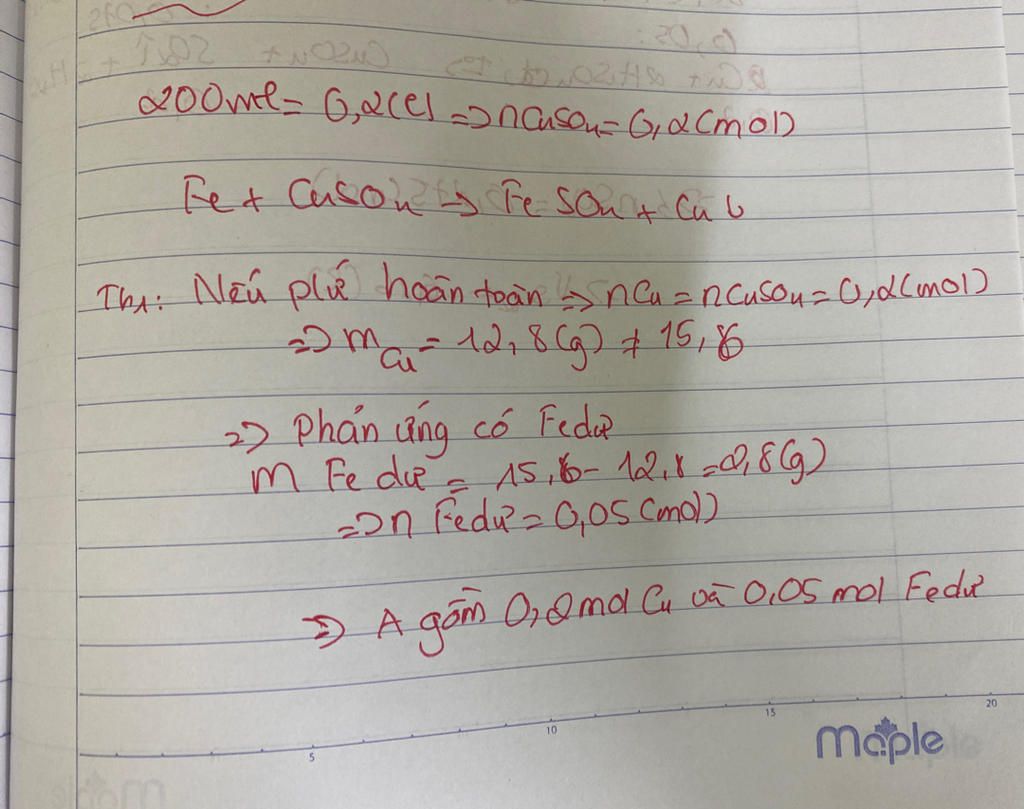 200ml = 0,2(l) => nCuSO4 = 0,2(mol)
Fe + CuSO4 -> FeSO4 + Cu ↓
Th1: Nếu pứ hoàn toàn => nCu = nCuSO4 = 0,2(mol)
=> mCu = 12,8(g) ≠ 15,6
=> Phản ứng có Fe dư
m Fe dư = 15,6 - 12,8 = 2,8(g)
=> n Fe dư = 0,05(mol)
=> A gồm 0,2 mol Cu và 0,05 mol Fe dư
5 10 15 20
maple